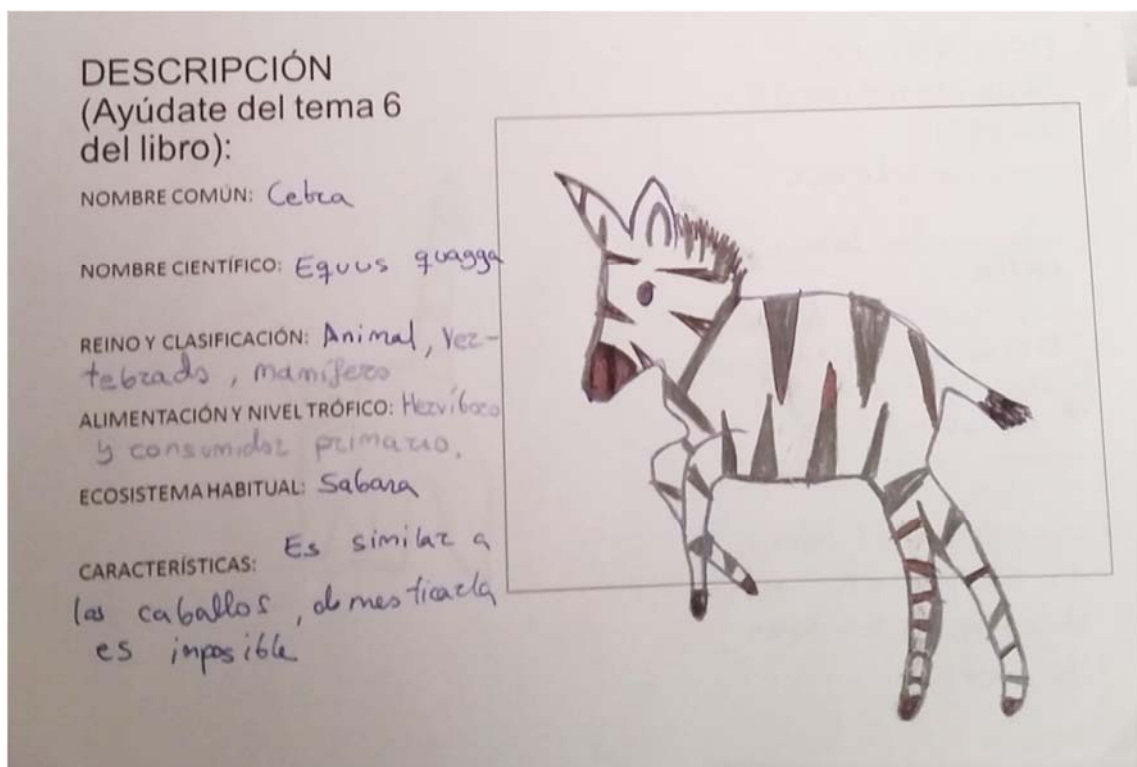 DESCRIPCIÓN
(Ayúdate del tema 6
del libro):
NOMBRE COMÚN: Cebra
NOMBRE CIENTÍFICO: Equus quagga
REINO Y CLASIFICACIÓN: Animal, ver-
tebrado, mamífero
ALIMENTACIÓN Y NIVEL TRÓFICO: Hervíboro
y consumidor primario.
ECOSISTEMA HABITUAL: Sabana
CARACTERÍSTICAS: Es similar a
los caballos, domesticarla
es imposible